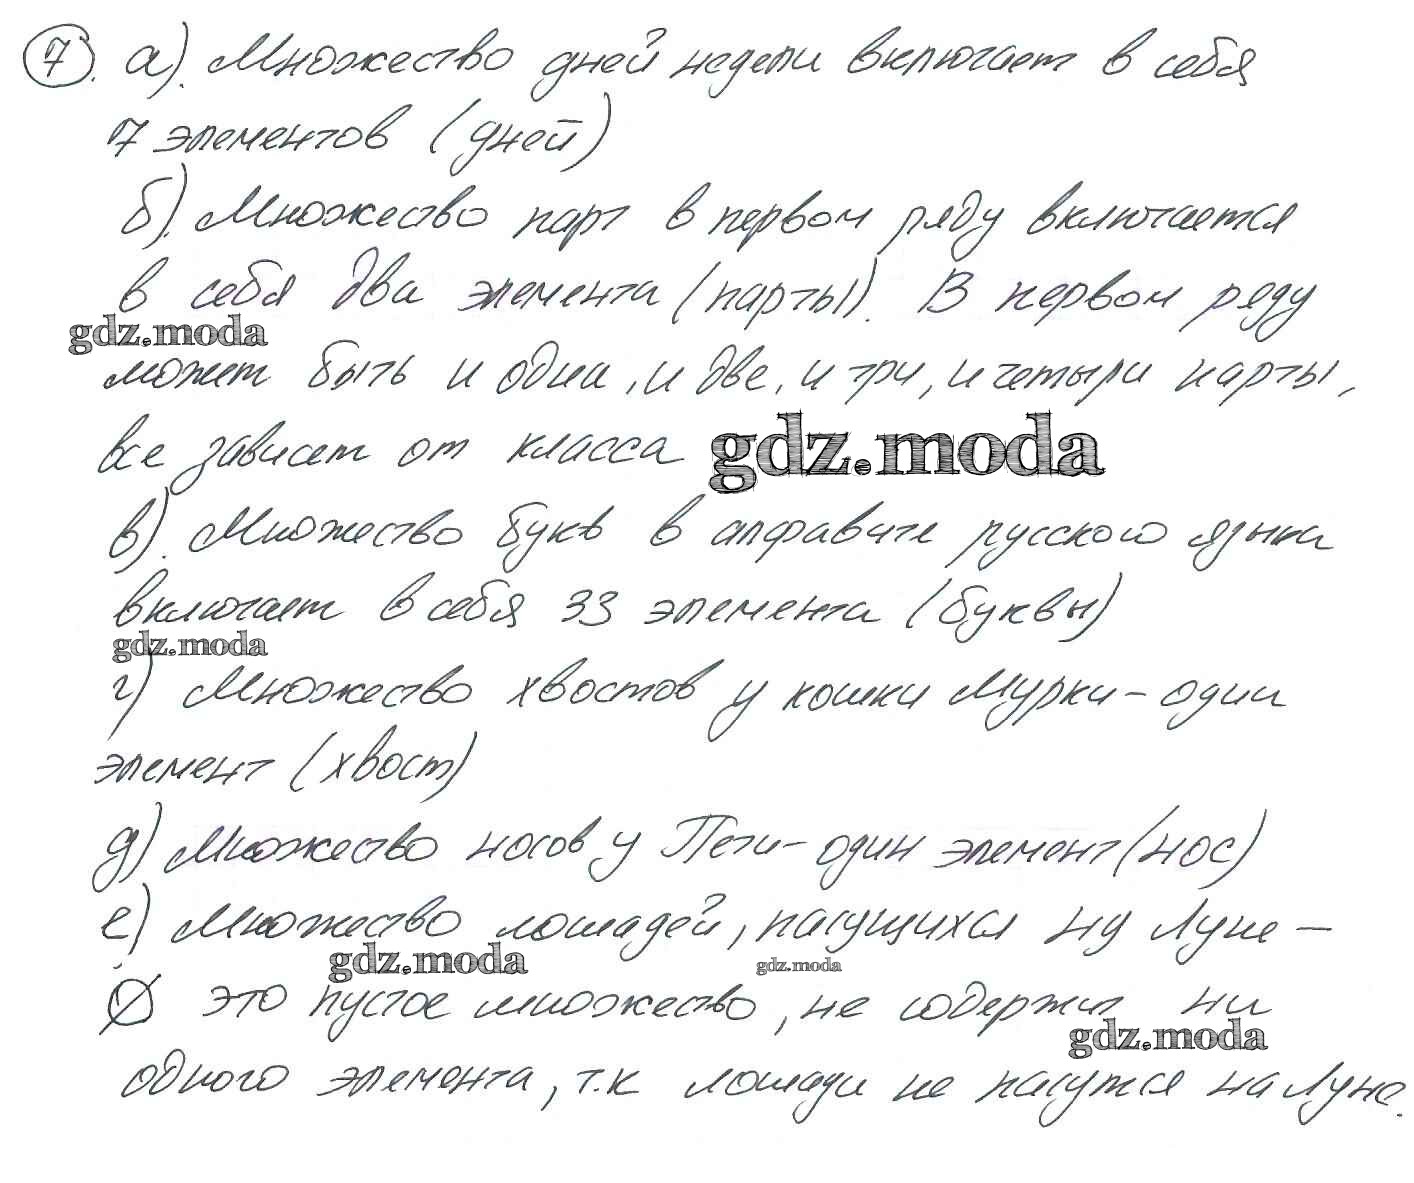 7. а). Множество дней недели включает в себя
7 элементов (дней)
б). Множество парт в первом ряду включается
в себя два элемента (парты). В первом ряду
gdz.moda
может быть и одна, и две, и три, и четыри парты,
все зависет от класса gdz.moda
в). Множество букв в алфавите русского языка
включает в себя 33 элемента (буквы)
gdz.moda
г) Множество хвостов у кошки Мурки - один
элемент (хвост)
д) Множество носов у Пети - один элемент (нос)
е) Множество лошадей, пасущихся ну Луне -
gdz.moda gdz.moda
∅ это пустое множество, не содержит ни
gdz.moda
одного элемента, т.к лошади не пасутся на Луне.